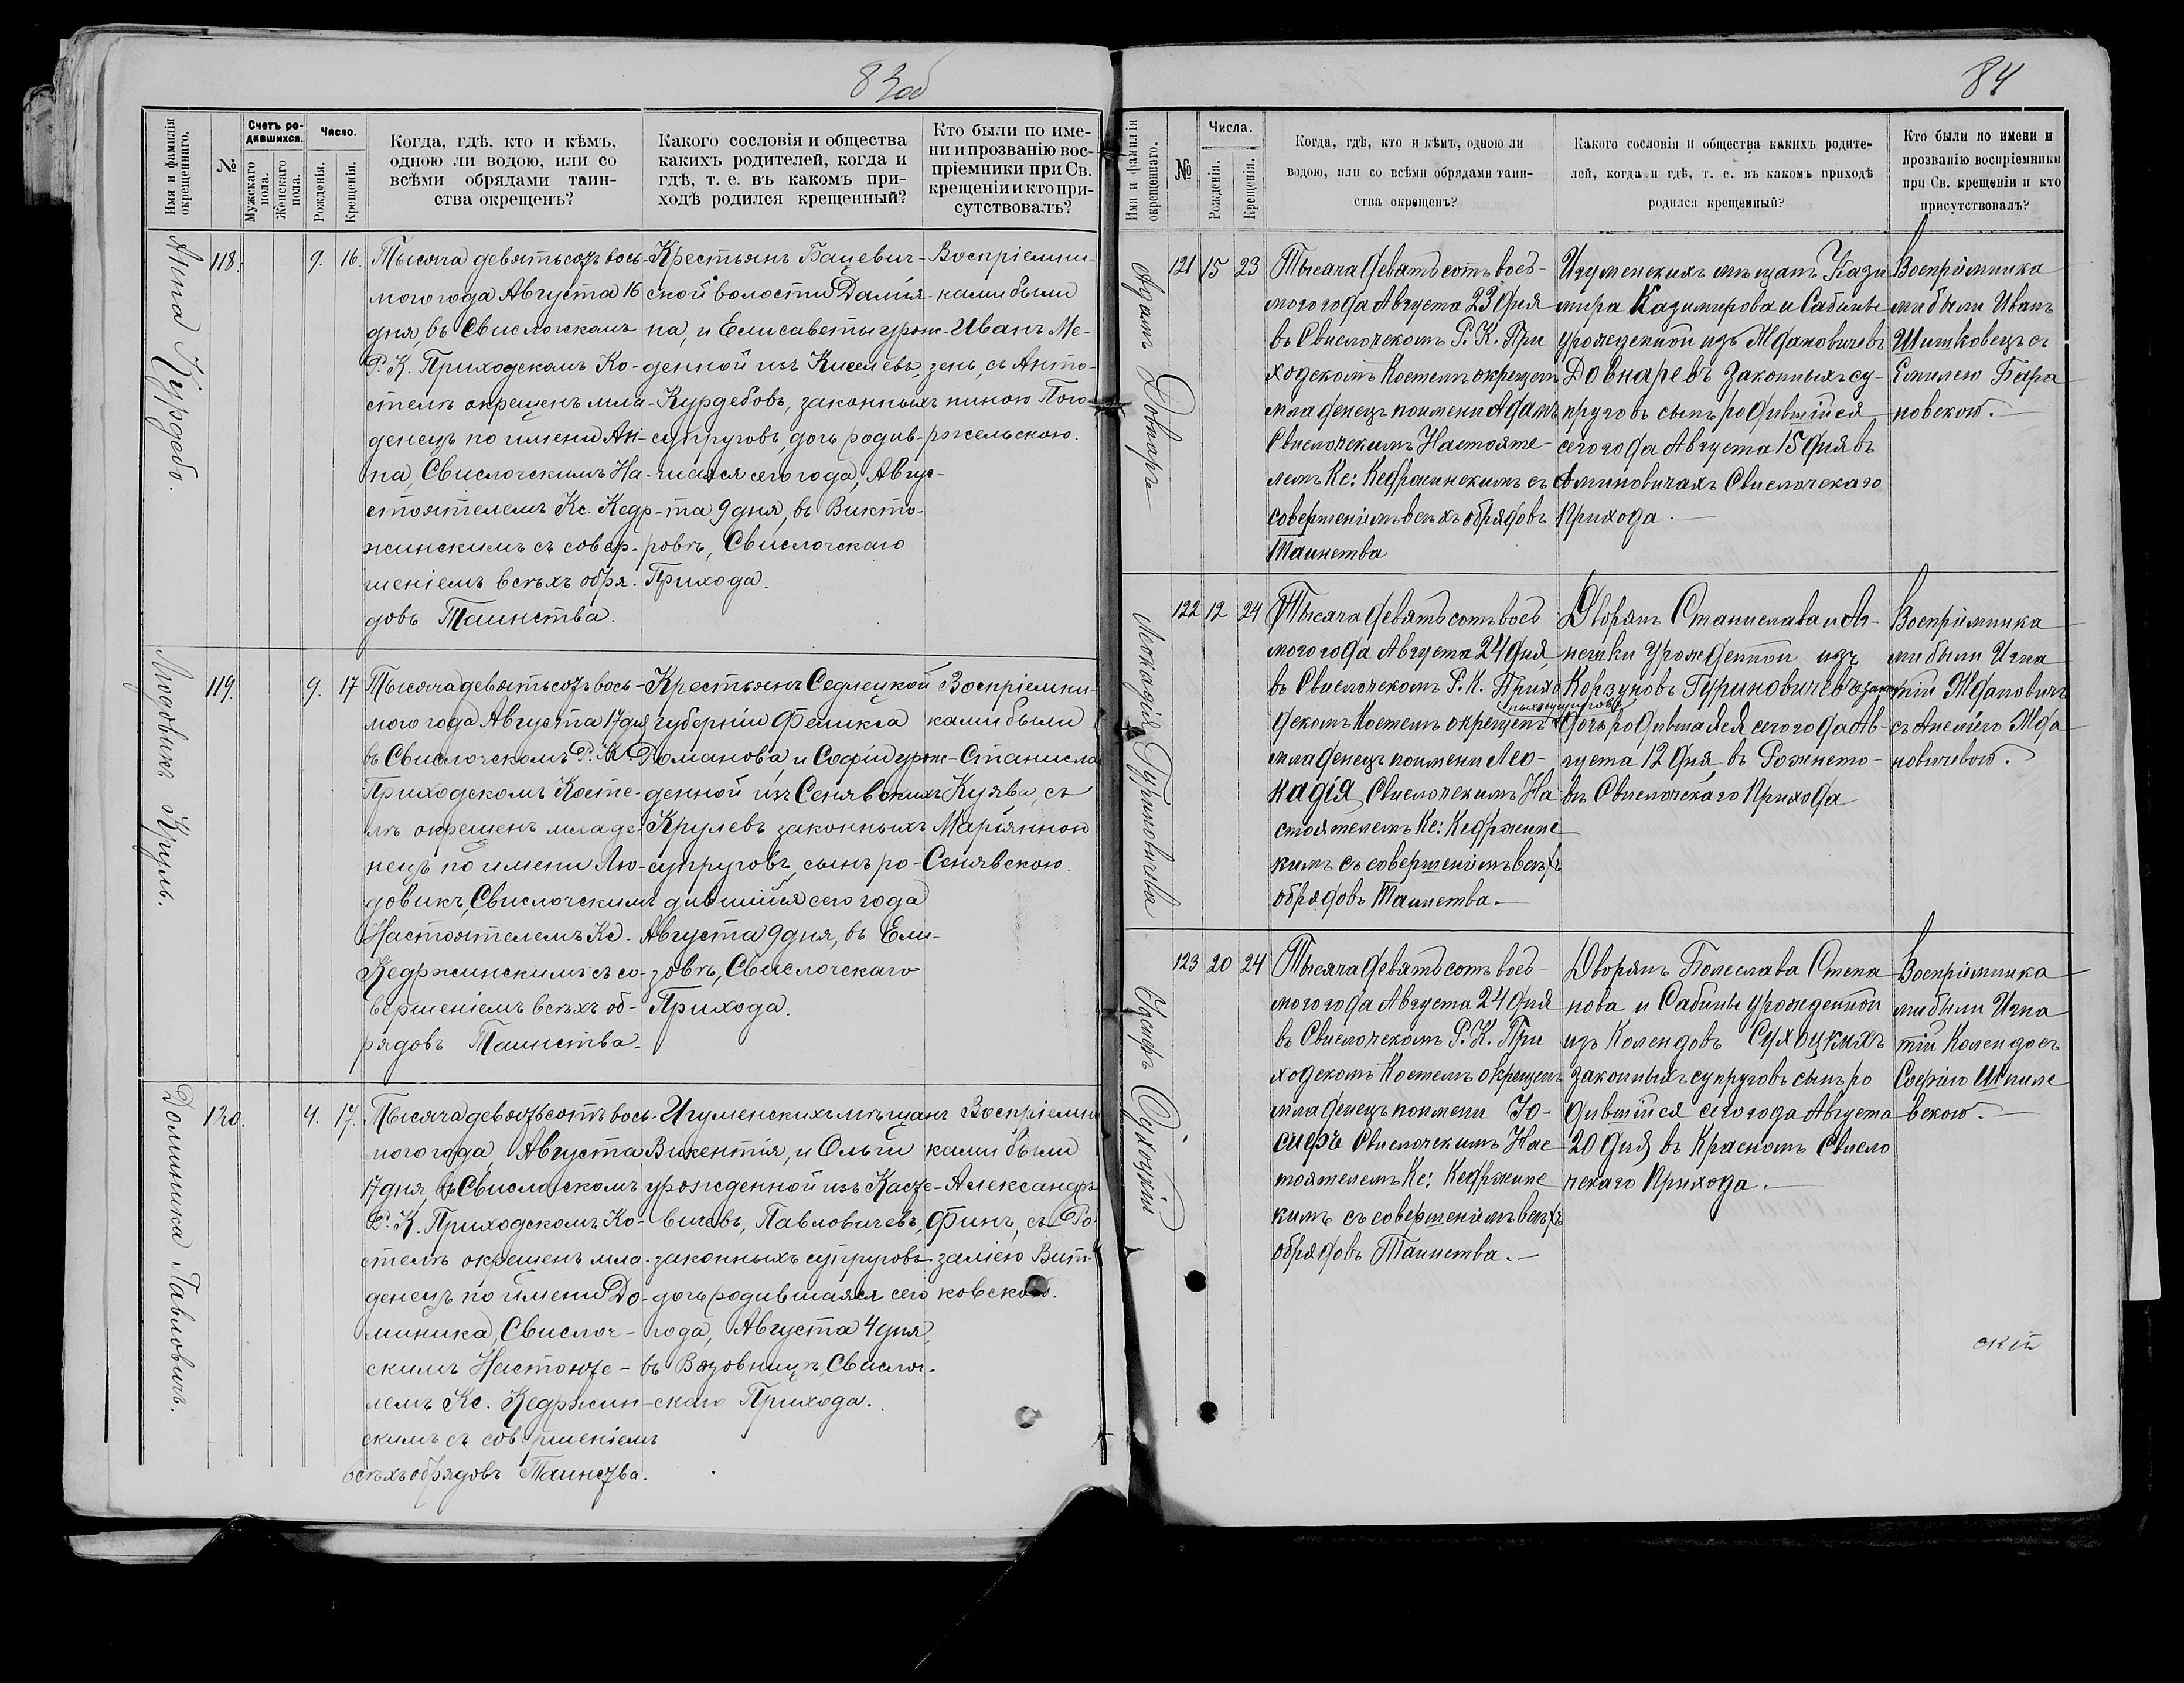 83об
Имя и фамилія окрещеннаго.
№
Счетъ родившихся.
Мужскаго пола.
Женскаго пола.
Число.
Рожденія.
Крещенія.
Когда, гдѣ, кто и кѣмъ,
одною ли водою, или со
всѣми обрядами таин-
ства окрещенъ?
Какого сословія и общества
какихъ родителей, когда и
гдѣ, т. е. въ какомъ при-
ходѣ родился крещенный?
Кто были по име-
ни и прозванію вос-
пріемники при Св.
крещеніи и кто при-
сутствовалъ?
Анна Курдебо.
118.
9.
16.
Тысяча девятьсотъ вось-
мого года Августа 16
дня, въ Свислочскомъ
Р. К. Приходскомъ Ко-
стелѣ окрещенъ мла-
денецъ по имени Ан-
на, Свислочскимъ На-
стоятелемъ Кс. Кедр-
жинскимъ съ совер-
шеніемъ всѣхъ обря-
довъ Таинства.
Крестьянъ Бацевич-
ской волости Дамія-
на, и Елисаветы урож-
денной изъ Киселевъ,
Курдебовъ, законныхъ
супруговъ, дочь родив-
шаяся сего года, Авгус-
та 9 дня, въ Викто-
ровкѣ, Свислочскаго
Прихода.
Воспріемни-
ками были
Иванъ Ме-
зень, съ Анто-
ниною Пого-
ржельскою.
Людовикъ Круль.
119.
9.
17
Тысяча девятьсотъ вось-
мого года Августа 17 дня
въ Свислочскомъ Р. К.
Приходскомъ Косте-
лѣ окрещенъ младе-
нецъ по имени Лю-
довикъ, Свислочскимъ
Настоятелемъ Кс.
Кедржинскимъ съ со-
вершеніемъ всѣхъ об-
рядовъ Таинства.
Крестьянъ Седлецкой
губерніи Феликса
Романова и Софіи урож-
денной изъ Сенявскихъ
Крулевъ законныхъ
супруговъ, сынъ ро-
дившійся сего года
Августа 9 дня, въ Ели-
зовѣ, Свислочскаго
Прихода.
Воспріемни-
ками были
Станисла
Кузьва, съ
Маріянною
Сенявскою.
Доминика Павловичъ.
120.
4.
17.
Тысяча девятьсотъ вось-
мого года, Августа
17 дня, въ Свислочскомъ
Р. К. Приходскомъ Ко-
стелѣ окрещенъ мла-
денецъ по имени До-
миника, Свислоч-
скимъ Настояте-
лемъ Кс. Кедржин-
скимъ съ совершеніемъ
всѣхъ обрядовъ Таинства.
Игуменскихъ мѣщанъ
Викентія, и Ольги
урожденной изъ Касze-
вичевъ, Павловичевъ,
законныхъ супруговъ
дочь родившаяся сего
года, Августа 4 дня,
въ Вязовницѣ, Свислоч-
скаго Прихода.
Воспріемни
ками были
Александръ
Финъ, съ Ро-
заліею Вит-
ковскою.
84
Имя и фамилія окрещеннаго.
№
Числа.
Рожденія.
Крещенія.
Когда, гдѣ, кто и кѣмъ, одною ли
водою, или со всѣми обрядами таин-
ства окрещенъ?
Какого сословія и общества какихъ родите-
лей, когда и гдѣ, т. е. въ какомъ приходѣ
родился крещенный?
Кто были по имени и
прозванію воспріемники
при Св. крещеніи и кто
присутствовалъ?
Адамъ Довнаръ
121
15
23
Тысяча девятьсотъ вось-
мого года Августа 23 дня
въ Свислочскомъ Р. К. При
ходскомъ Костелѣ окрещенъ
младенецъ по имени Адамъ
Свислочскимъ Настояте-
лемъ Кс: Кедржинскимъ съ
совершеніемъ всѣхъ обрядовъ
Таинства
Игуменскихъ мѣщанъ Кази
мира Казимирова и Сабины
урожденной изъ Ждановичевъ
Довнаревъ законныхъ су-
пруговъ сынъ родившійся
сего года Августа 15 дня въ
Аминовичахъ Свислочскаго
Прихода.
Воспріемника
ми были Иванъ
Шишковецъ съ
Емилею Бара
новскою.
Леокадія Гуриновичева
122
12
24
Тысяча девятьсотъ вось
мого года Августа 24 дня,
въ Свислочскомъ Р. К. Прихо
дскомъ Костелѣ окрещенъ
младенецъ по имени Лео-
кадія Свислочскимъ На
стоятелемъ Кс: Кедржинс
кимъ съ совершеніемъ всѣхъ
обрядовъ Таинства.
Дворянъ Станислава и Аг-
нешки урожденной изъ
Корзуновъ Гуриновичевъ закон
ныхъ супруговъ
дочь родившаяся сего года Ав-
густа 12 дня, въ Рожнето-
вѣ Свислочскаго Прихода
Воспріемника
ми были Игна
тій Ждановичъ
съ Анелією Жда
новичевою.
Іосифъ Сухоцкій
123
20
24
Тысяча девятьсотъ вось-
мого года Августа 24 дня
въ Свислочскомъ Р. К. При
ходскомъ Костелѣ окрещенъ
младенецъ по имени Іо-
сифъ Свислочскимъ Нас
тоятелемъ Кс: Кедржинс
кимъ съ совершеніемъ всѣхъ
обрядовъ Таинства.
Дворянъ Болеслава Степа
нова и Сабины урожденной
изъ Колендовъ Сухоцкихъ
законныхъ супруговъ сынъ ро
дившійся сего года Августа
20 дня въ Красномъ Свисло
чскаго Прихода.
Воспріемника
ми были Игна
тій Колендо съ
Софією Шпиле
вскою.